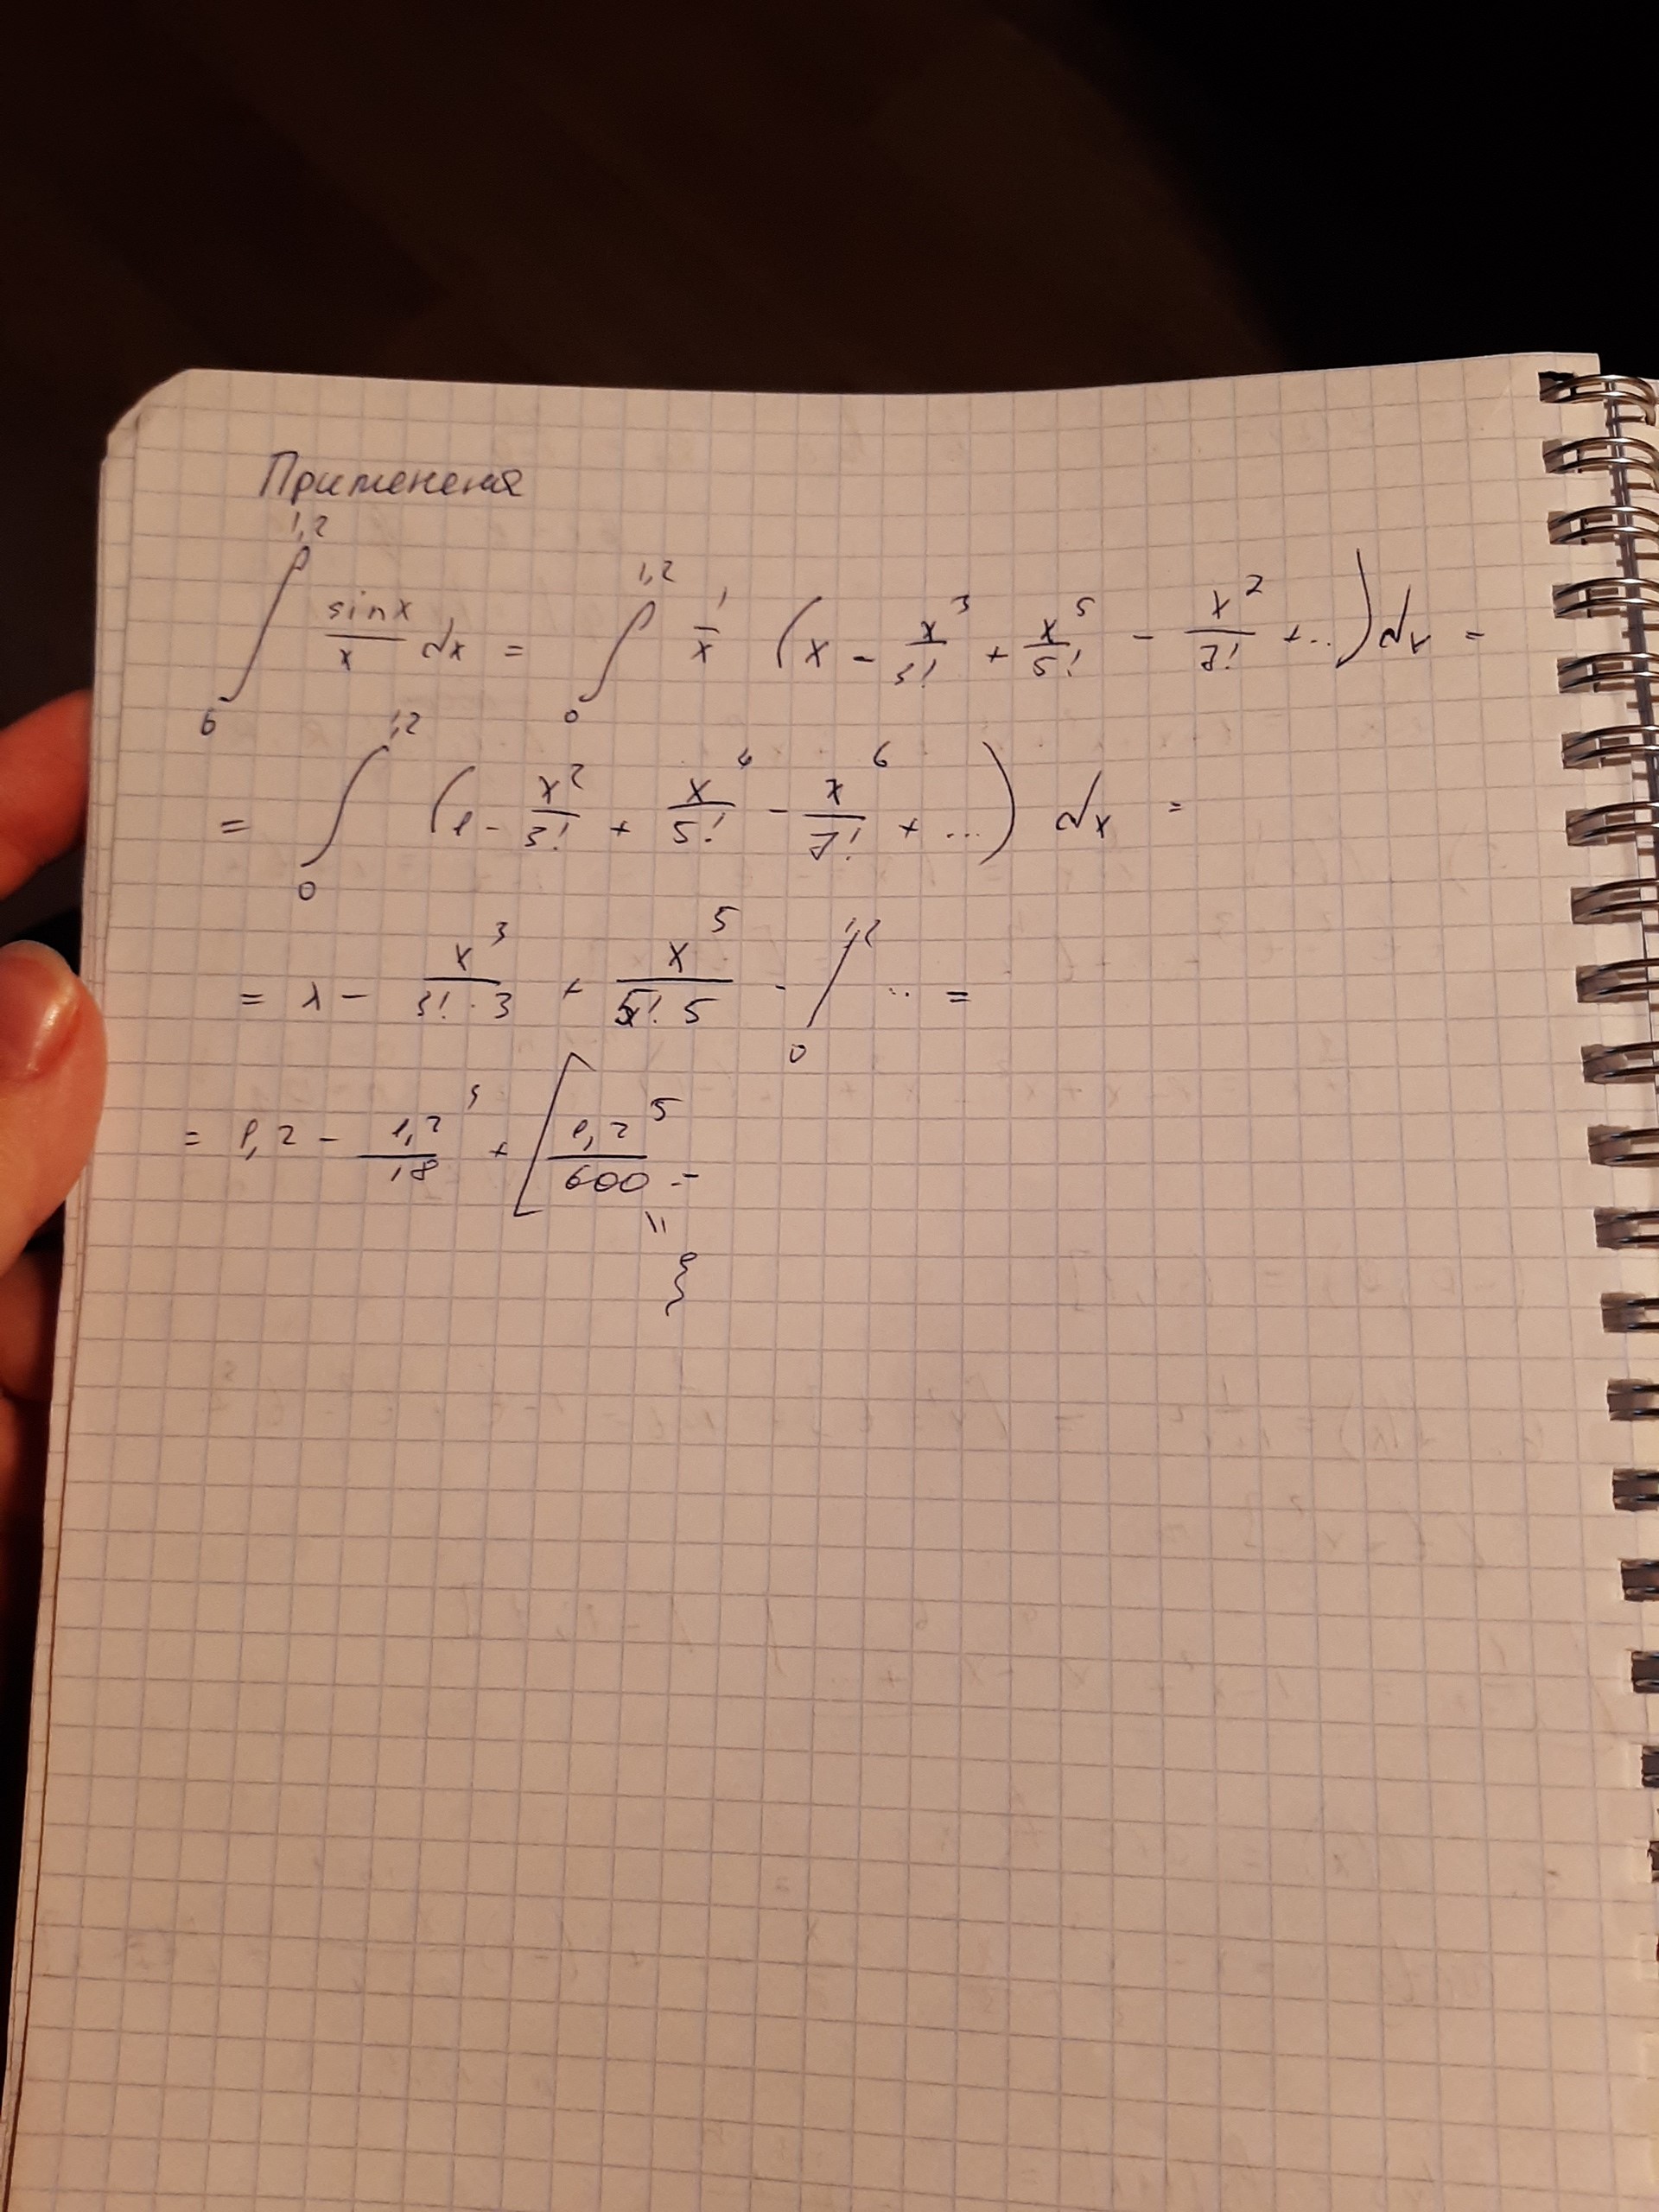 Применения
∫₀^{1,2} sinx/x dx = ∫₀^{1,2} 1/x (x - x³/3! + x⁵/5! - x⁷/7! + ...) dx =
= ∫₀^{1,2} (1 - x²/3! + x⁴/5! - x⁶/7! + ...) dx =
= x - x³/3!·3 + x⁵/5!·5 - |₀^{1,2} ... =
= 1,2 - 1,2³/18 + [1,2⁵/600 -